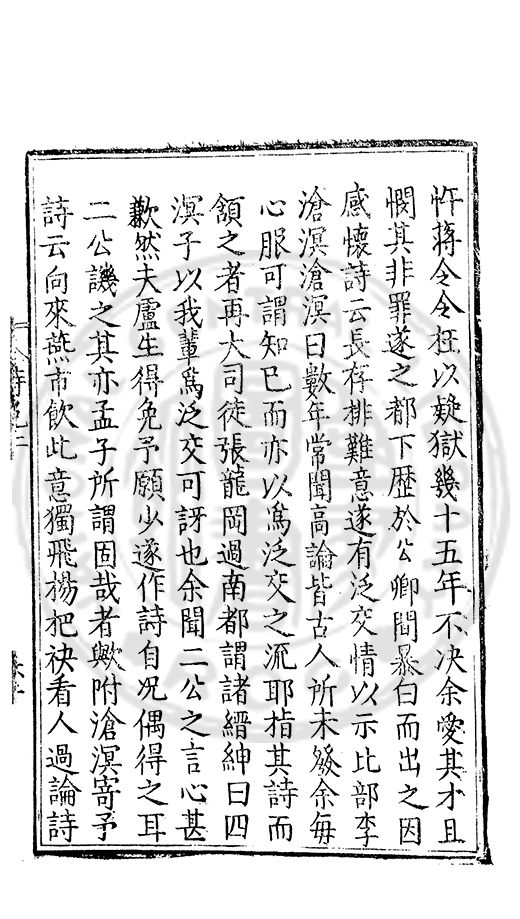 忤蔣令令枉以疑獄幾十五年不决余愛其才且
憫其非罪遂之都下歷於公卿間暴白而出之因
感懷詩云長存排難意遂有泛交情以示比部李
滄溟滄溟曰數年常聞高論皆古人所未發余每
心服可謂知己而亦以爲泛交之流耶指其詩而
頷之者再大司徒張龍岡過南都謂諸縉紳曰四
溟子以我輩爲泛交可訝也余聞二公之言心甚
歉然夫盧生得免予願少遂作詩自况偶得之耳
二公譏之其亦孟子所謂固哉者歟附滄溟寄予
詩云向來燕市飲此意獨飛揚把袂看人過論詩